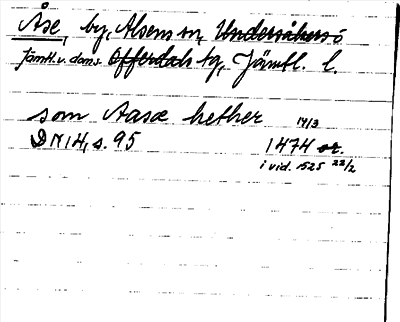 Åse, by, Alsens sn, Undersåkers
Jämtl. v. doms. Offerdals tg, Jämtl. l.
som Aasæ hether 14/3
DN 14, s. 95 1474 or.
i vid. 1525 22/2